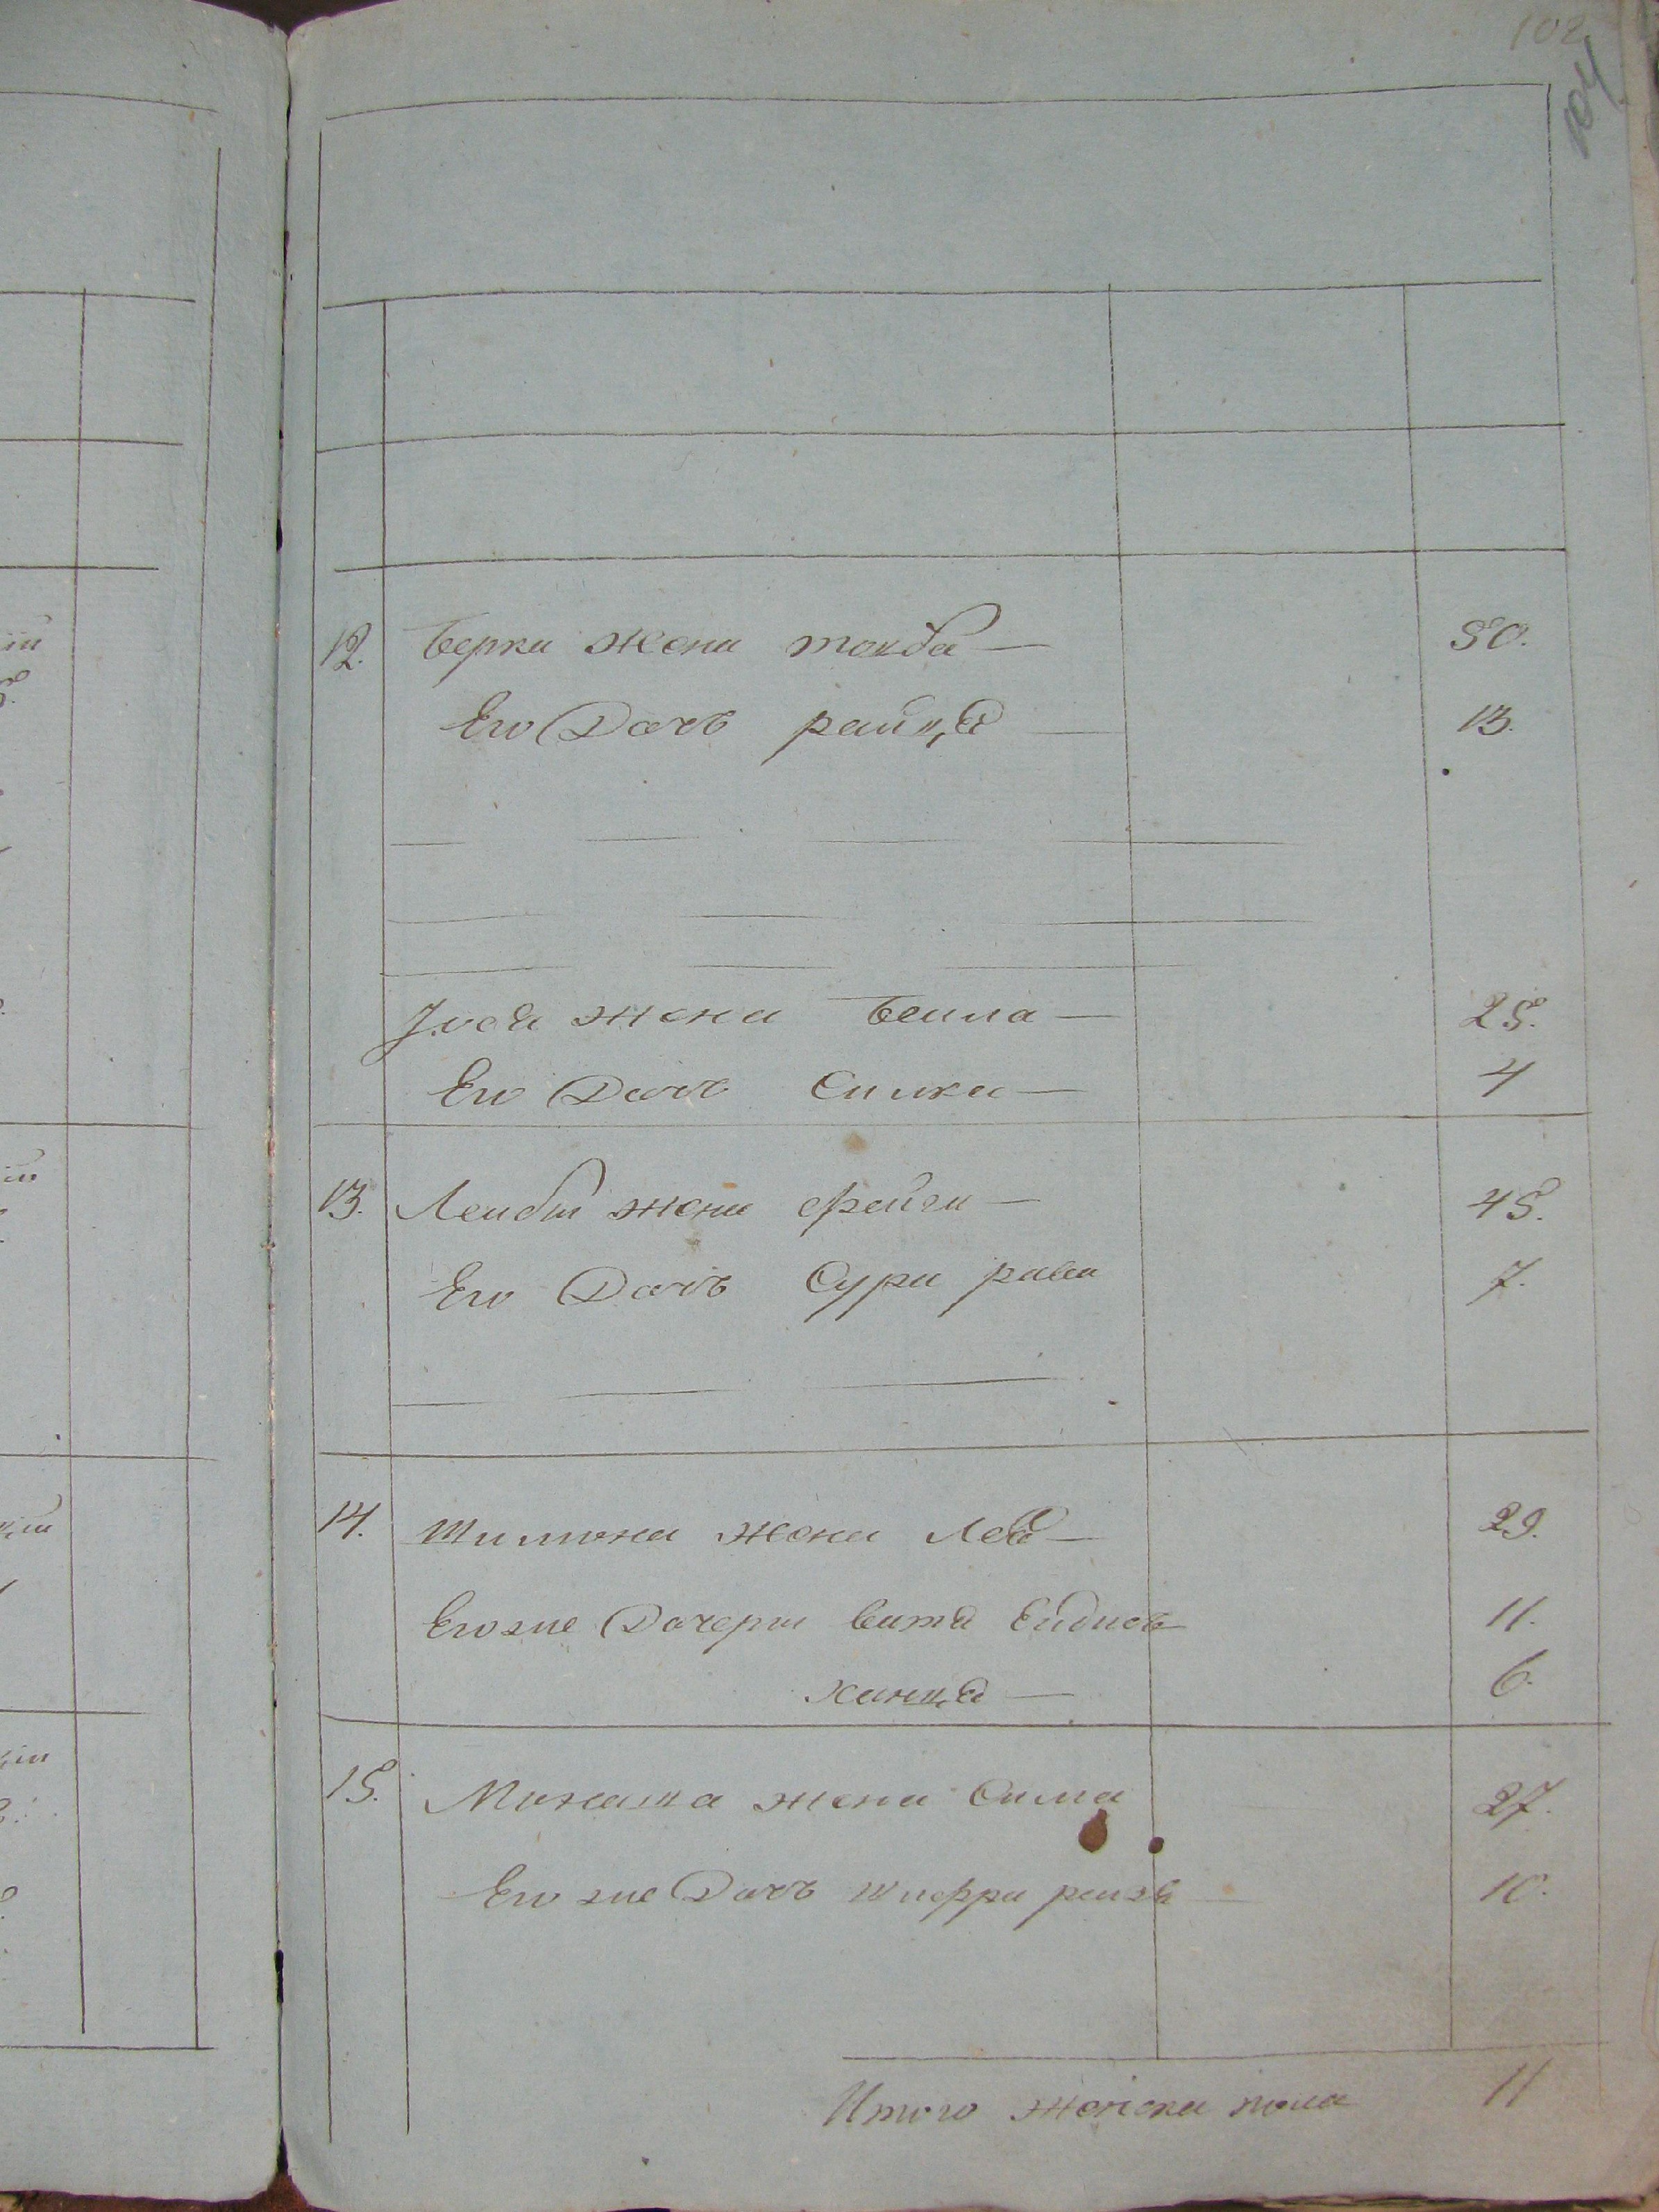 102
104
12. Берки жена товба — 50.
Его Дочь райца — 13.
Іося жена Беила — 25.
Его Дочь Сишка — 4
13. Лейбы жена Фейга — 45.
Его Дочь Сура рива 7.
14. Шимона жена Лея — 29.
Его же Дочери Вита Ейдись 11.
ханца — 6.
15. Монашка жена Сима 27.
Его же Дочь Шифра рейзя — 10.
Итого женска пола 11